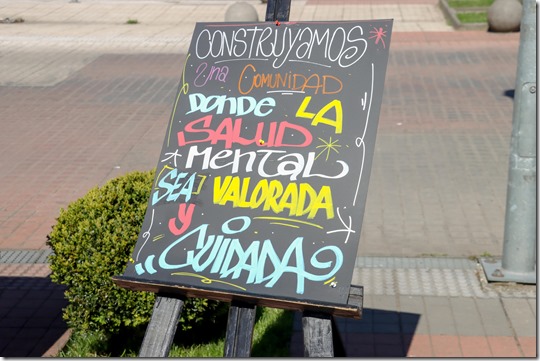 CONSTRUYAMOS
Una COMUNIDAD
DONDE LA
SALUD
MENTAL
SEA VALORADA
Y
CUIDADA